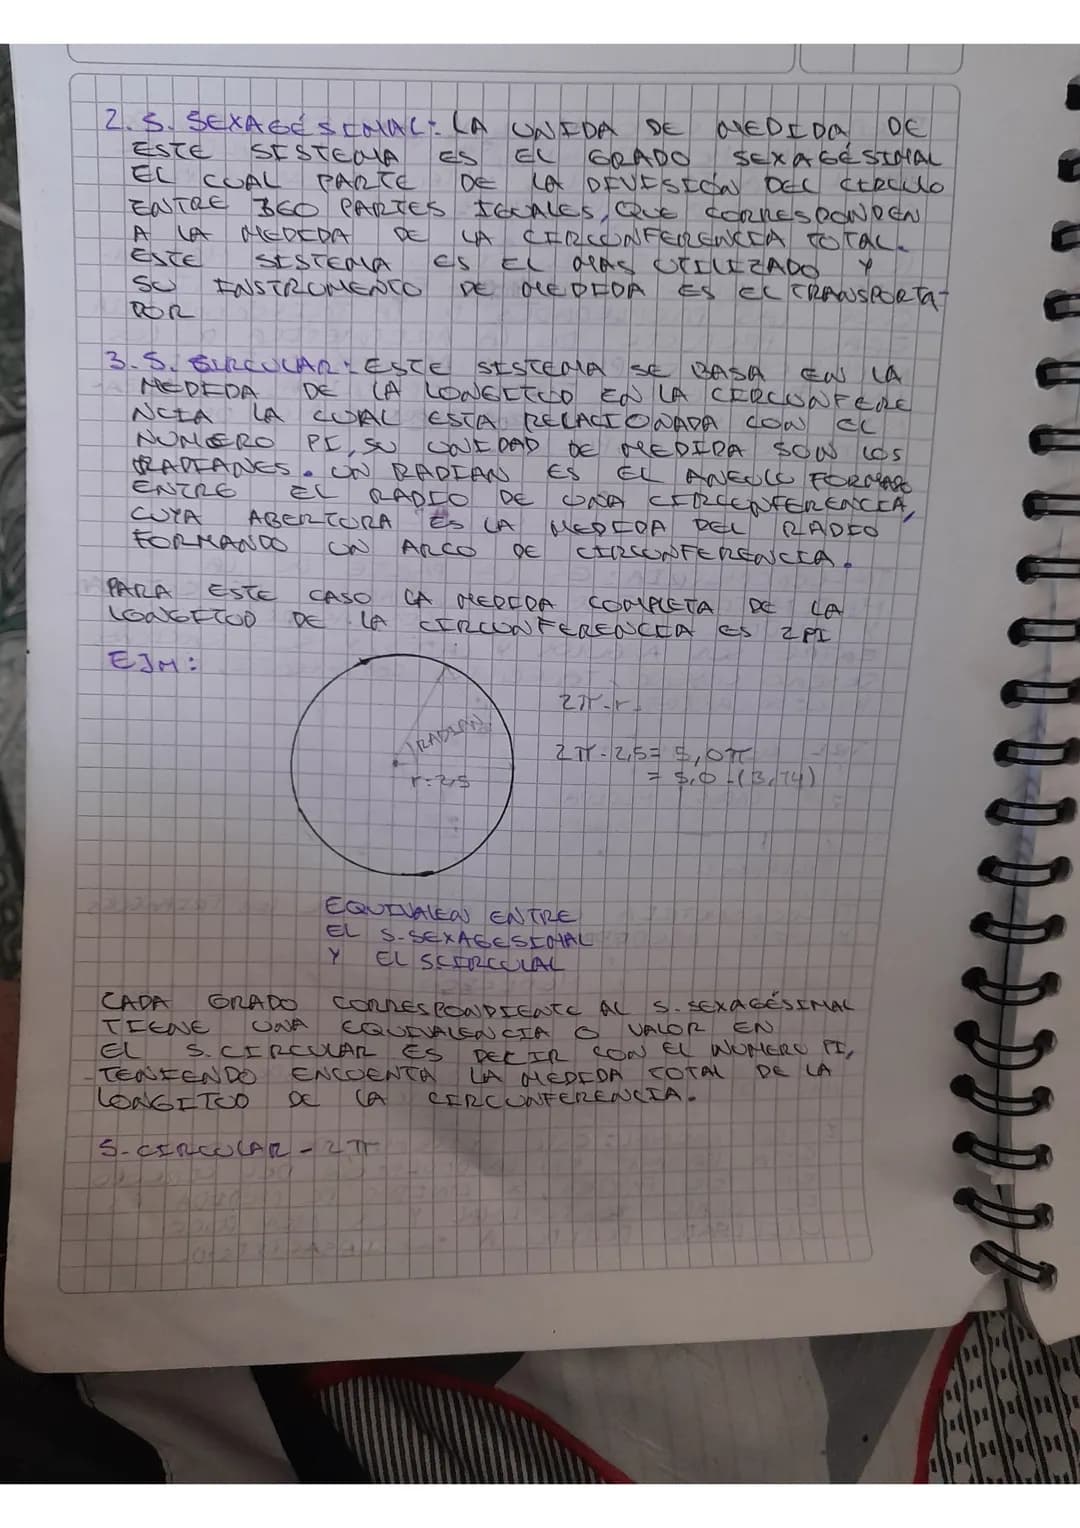 2. S. SEXAGÉSIMAL: LA UNIDA DE MEDIDA DE
ESTE SISTEMA ES EL GRADO SEXAGÉSIMAL
EL CUAL PARTE DE LA DIVISIÓN DEL CIRCULO
ENTRE 360 PARTES IGUALES, QUE CORRESPONDEN
A LA MEDIDA DE LA CIRCUNFERENCIA TOTAL.
ESTE SISTEMA ES EL MAS UTILIZADO Y
SU INSTRUMENTO DE MEDIDA ES EL TRANSPORTA-
DOR
3. S. CIRCULAR: ESTE SISTEMA SE BASA EN LA
MEDIDA DE LA LONGITUD EN LA CIRCUNFERE
NCIA LA CUAL ESTA RELACIONADA CON EL
NUMERO PI, SU UNIDAD DE MEDIDA SON LOS
RADIANES. UN RADIAN ES EL ANGULO FORMADO
ENTRE EL RADIO DE UNA CIRCUNFERENCIA,
CUYA ABERTURA ES LA MEDIDA DEL RADIO
FORMANDO UN ARCO DE CIRCUNFERENCIA.
PARA ESTE CASO LA MEDIDA COMPLETA DE LA
LONGITUD DE LA CIRCUNFERENCIA ES 2PI
EJM:
2π·r
1RADIAN
2π·2,5= 5,0π
r=2,5
= 5,0·(3,14)
EQUIVALEN ENTRE
EL S-SEXAGESIMAL
Y EL SCIRCULAL
CADA GRADO CORRESPONDIENTE AL S. SEXAGÉSIMAL
TIENE UNA EQUIVALENCIA O VALOR EN
EL S. CIRCULAR ES DECIR CON EL NUMERO PI,
TENIENDO ENCUENTA LA MEDIDA TOTAL DE LA
LONGITUD DE LA CIRCUNFERENCIA.
S-CIRCULAR - 2π